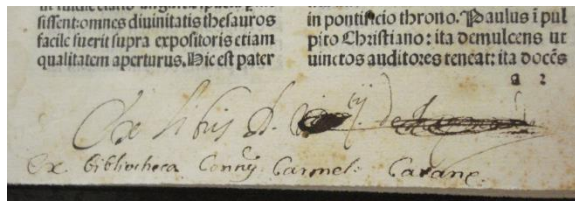 siffent: omnes diuinitatis thesauros
facile fuerit supra expositoris etiam
qualitatem aperturus. Hic est pater
in pontificio throno. Paulus ĩ pul
pito Christiano: ita demulcens ut
uinctos auditores teneat: ita docẽs
a 2
Ex libris D.
Ex Bibliotheca Conuẽ Carmel: Catane.